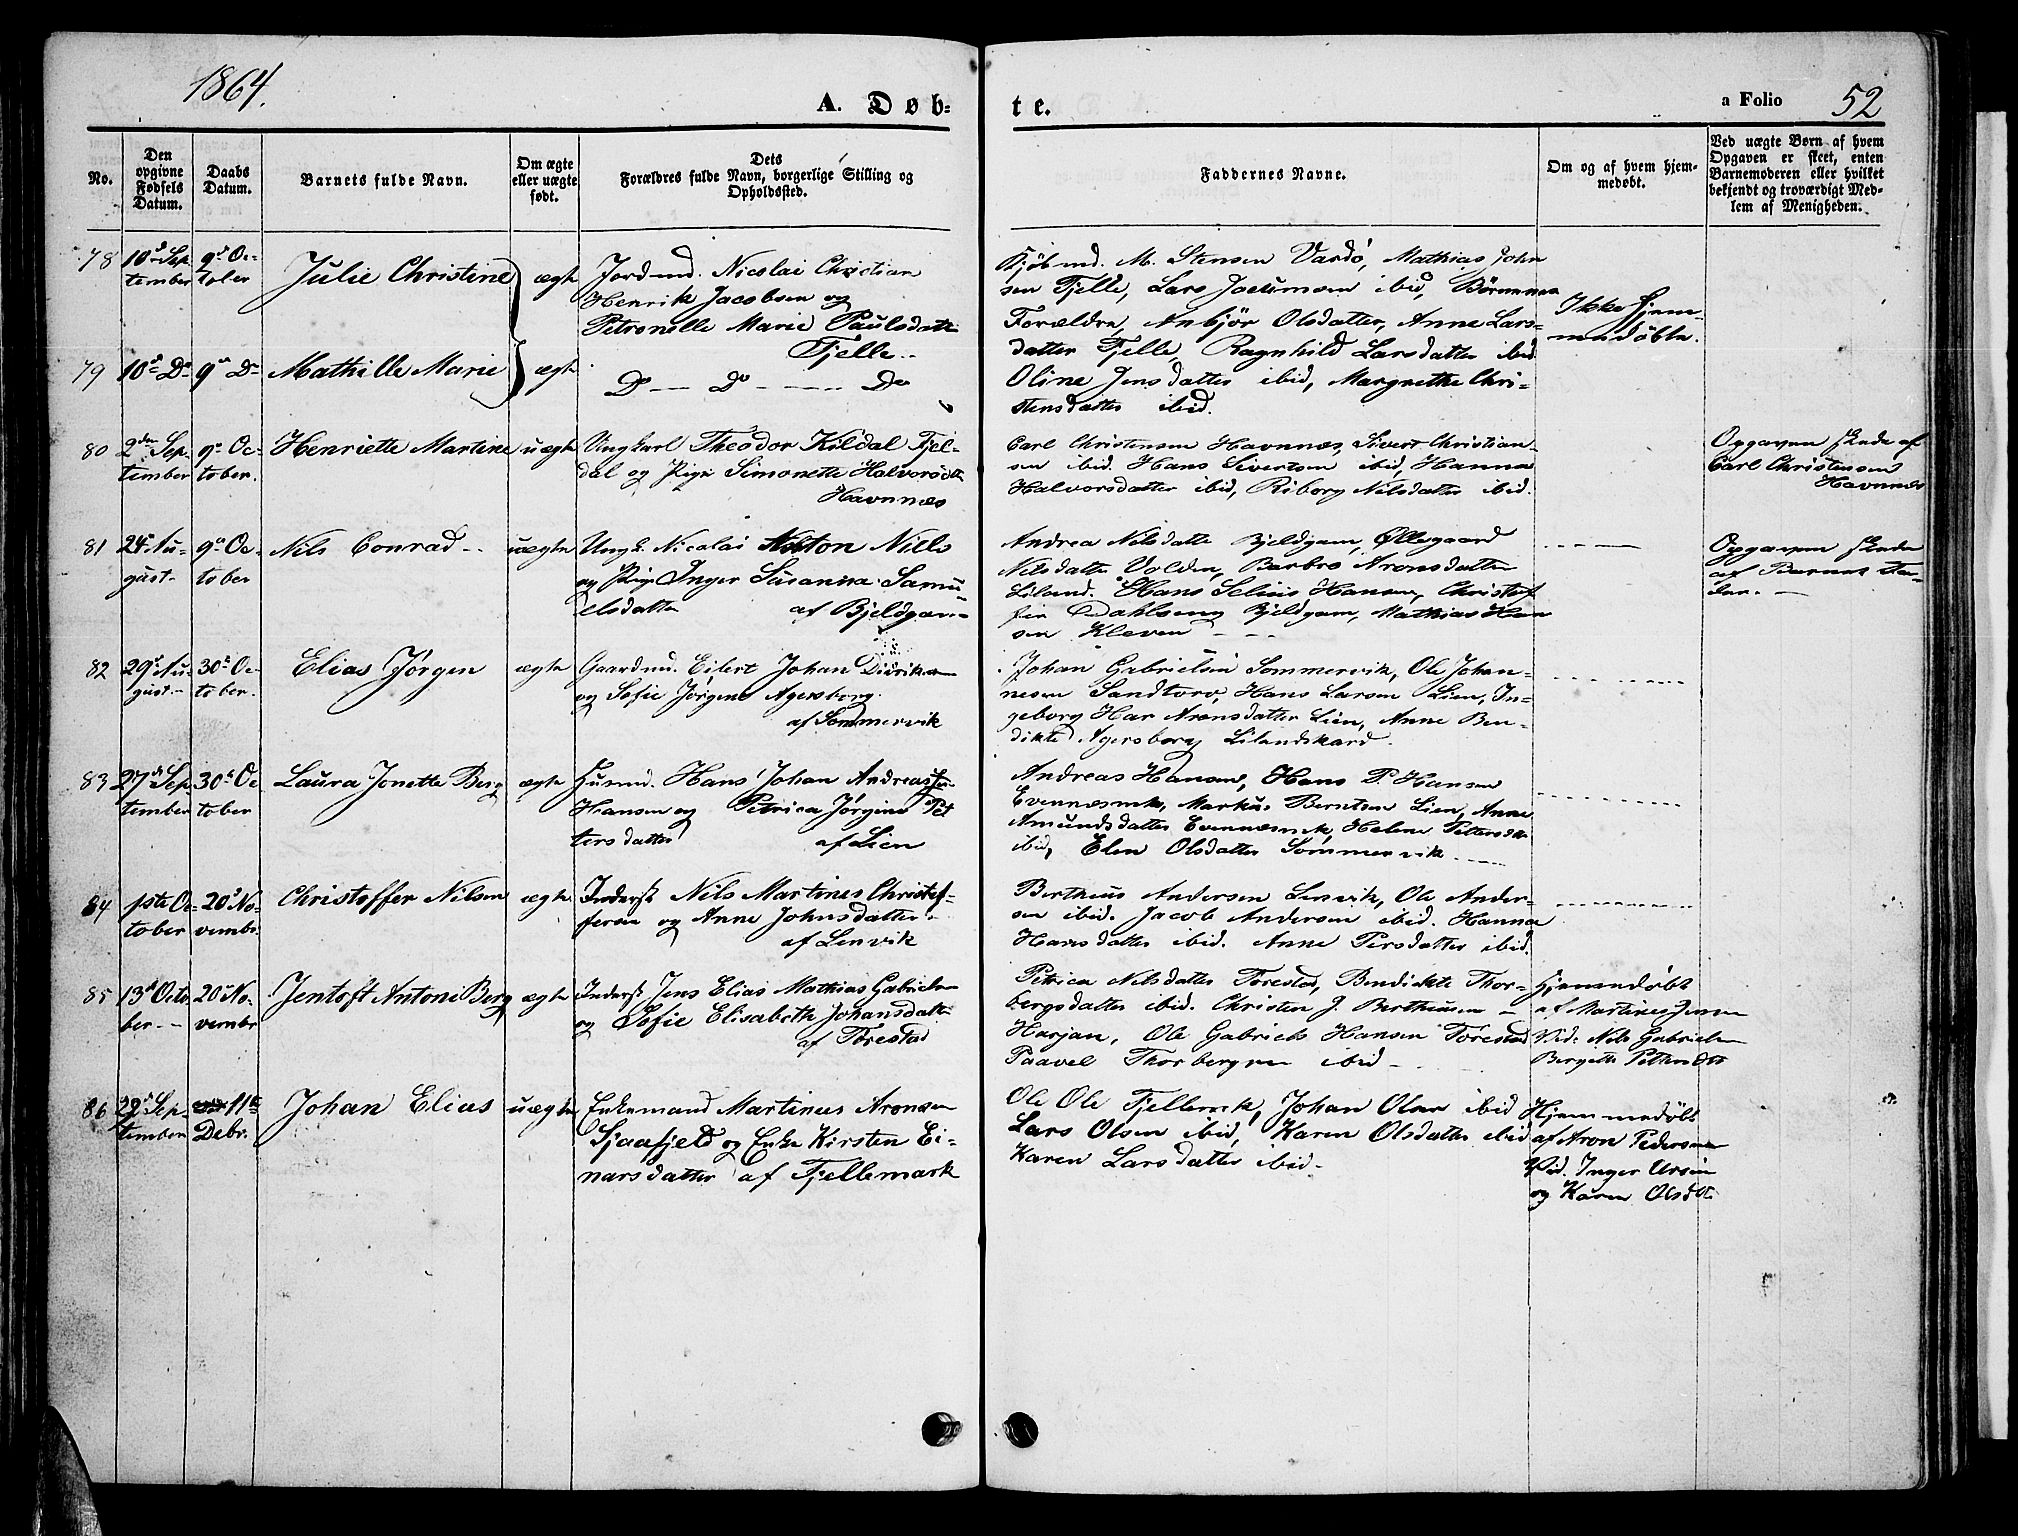 1864.
A. Døb-
te.
a Folio 52
No.
Den opgivne Fødsels Datum.
Daabs Datum.
Barnets fulde Navn.
Om ægte eller uægte født.
Dets Forældres fulde Navn, borgerlige Stilling og Opholdssted.
Faddernes Navne.
Om og af hvem hjemmedøbt.
Ved uægte Børn af hvem Opgaven er skeet, enten Barnemoderen eller hvilket bekjendt og troværdigt Medlem af Menigheden.
78 10d Sep- 9d Oc- Julie Christine ægte Jordmd. Nicolai Christian
tember tober Henrik Jacobsen og
Petronelle Marie Paulsdatt
Fjelle..
Kjøbmd. M. Stensen Vardö, Mathias John
sen Fjelle, Lars ibid, Børnenes
Forældre, Anbjör Olsdatter, Anne Lars-
datter Fjelle, Ragnhild Larsdatter ibid
Oline Jensdatter ibid, Margrethe Chri-
stensdatter ibid.
Ikke hjem-
medøbte.
79 10d Do 9d Do Mathille Marie ægte Do -- Do ---- Do
80 2den Sep- 9d Oc- Henriette Martine uægte Ungkarl Theodor Kildal Fjel-
tember tober. dal og Pige Simonette Halvorsdt
Havnnæs
Carl Christensen Havnnæs, Sivert Christian-
sen ibid. Hans Sivertsen ibid, Hanna
Halvorsdatter ibid, Riborg Nilsdatter ibid.
Opgaven skede af
Carl Christensen
Havnnæs
81 24d Au- 9d Oc- Nils Conrad -- uægte Ungk. Nicolai Ashton Nills
gust- tober og Pige Inger Susanna Samu-
elsdatter af Bjeldgam-
Andrea Nilsdatter Bjeldgam, Øllegaard
Nilsdatter Volden, Barbro Aronsdatter
Liland. Hans Selius Hansen, Christof
fer Dahlseng Bjeldgam, Mathias Han
sen Kleven ---
Opgaven skede
af Barnets Fa-
der. -
82 29d Au- 30d Oc- Elias Jørgen ægte Gaardmd. Eilert Johan Didriksen
gust- tober. og Sofie Jørgine Agersborg.
af Sommervik
Johan Gabrielsen Sommervik, Ole Johan-
nesen Sandtorv, Hans Larsen Lien, In-
geborg Mar Aronsdatter Lien, Anne Ben-
dikte Agersborg Lilandskard.
83 27d Sep- 30d Oc Laura Jonette Berg ægte Husmd. Hans Johan Andreas
tember tober Hansen og Petrica Jørgine Pet
tersdatter af Lien
Andreas Hansen, Hans P. Hansen
Evennæsmk, Markus Berntsen Lien, Anne
Amundsdatter Evennæsmk, Helene Pettersdt
ibid, Elen Olsdatter Sommervik ----
84 1ste Oc- 20d No- Christoffer Nilsen ægte Inderst Nils Martines Christof-
tober vembr. fersen og Anne Johnsdatter
af Lenvik
Bertheus Andersen Lenvik, Ole Ander-
sen ibid. Jacob Andersen ibid. Hanna
Hansdatter ibid. Anne Persdatter ibid.
85 13d Octo- 20d No- Jentoft Antoni Berg ægte Inderst Jens Elias Mathias Gabrielsen
ber.-- vembr og Sofie Elisabeth Johansdatter
af Tørestad
Petrica Nilsdatter Torestad, Bendikte Thor-
bergsdatter ibid. Christen J. Bertheusen -
Harjan, Ole Gabriels Hansen Torestad
Paavel Thorbergsen ibid -
Hjemmedøbt
af Martines Jensen
Vid: Nils Gabrielsen
Bergitte
86 29d Sep- 11te Johan Elias uægte Enkemand Martinus Aronsen
tember Debr. Sjaafjeld og Enke Kirsten Ei-
narsdatter af Fjellemark
Ole Ole Fjellemk, Johan Olsen ibid
Lars Olsen ibid, Karen Olsdatter ibid
Karen Larsdatter ibid-
Hjemmedøbt
af Aron Pedersen
Vid. Inger Ursin
og Karen Olsdt.